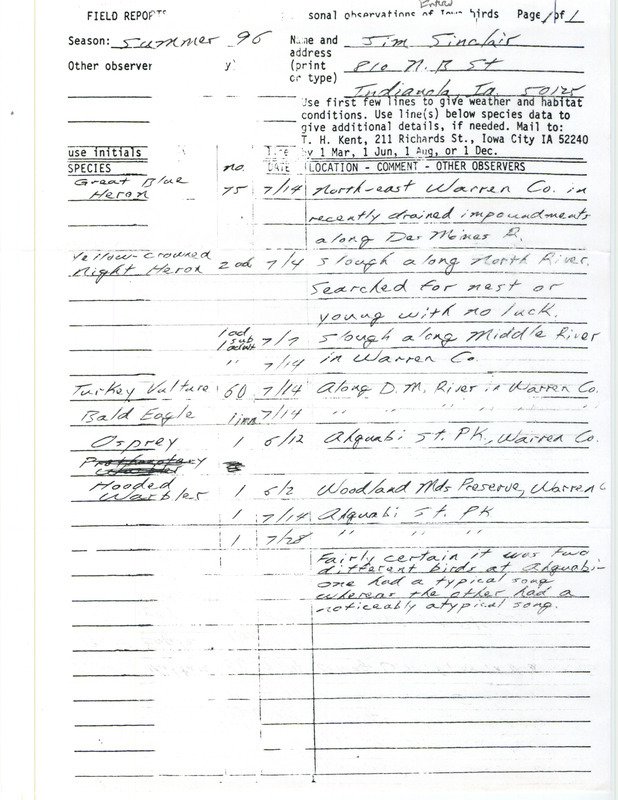 Entered
FIELD REPORTS sonal observations of Iowa birds Page 1 of 1
Season: Summer 96 Name and Jim Sinclair
address
Other observer y) (print 810 N. B St
or type)
Indianola, Ia. 50125
Use first few lines to give weather and habitat
conditions. Use line(s) below species data to
give additional details, if needed. Mail to:
T. H. Kent, 211 Richards St., Iowa City IA 52240
use initials by 1 Mar, 1 Jun, 1 Aug, or 1 Dec.
SPECIES no. DATE LOCATION - COMMENT - OTHER OBSERVERS
Great Blue
Heron 75 7/14 North-east Warren Co. in
recently drained impoundments
along Des Moines R.
Yellow-crowned
Night Heron 2 ad 7/4 Slough along North River.
Searched for nest or
young with no luck.
1 ad
1 sub
1 adult 7/7 Slough along Middle River
" 7/14 in Warren Co.
Turkey Vulture 60 7/14 Along D.M. River in Warren Co.
Bald Eagle 1 imm 7/14 " " " " "
Osprey 1 6/12 Ahquabi St. PK, Warren Co.
Prothonotary
Warbler
Hooded
Warbler 1 6/2 Woodland Mds Preserve, Warren C
1 7/14 Ahquabi St. PK
1 7/28 " " "
Fairly certain it was two
different birds at Ahquabi-
one had a typical song
whereas the other had a
noticeably atypical song.